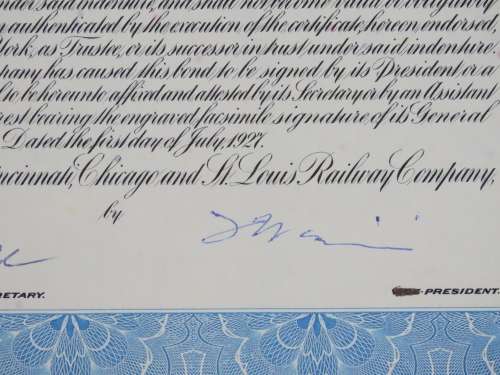 authenticated by the execution of the certificate, hereon endorsed,
York, as Trustee, or its successor in trust under said indenture.
pany has caused this bond to be signed by its President or a
l to be hereunto affixed and attested by its Secretary or by an Assistant
rest bearing the engraved facsimile signature of its General
Dated the first day of July, 1927.
incinnati, Chicago and St. Louis Railway Company,
by
RETARY.
PRESIDENT.